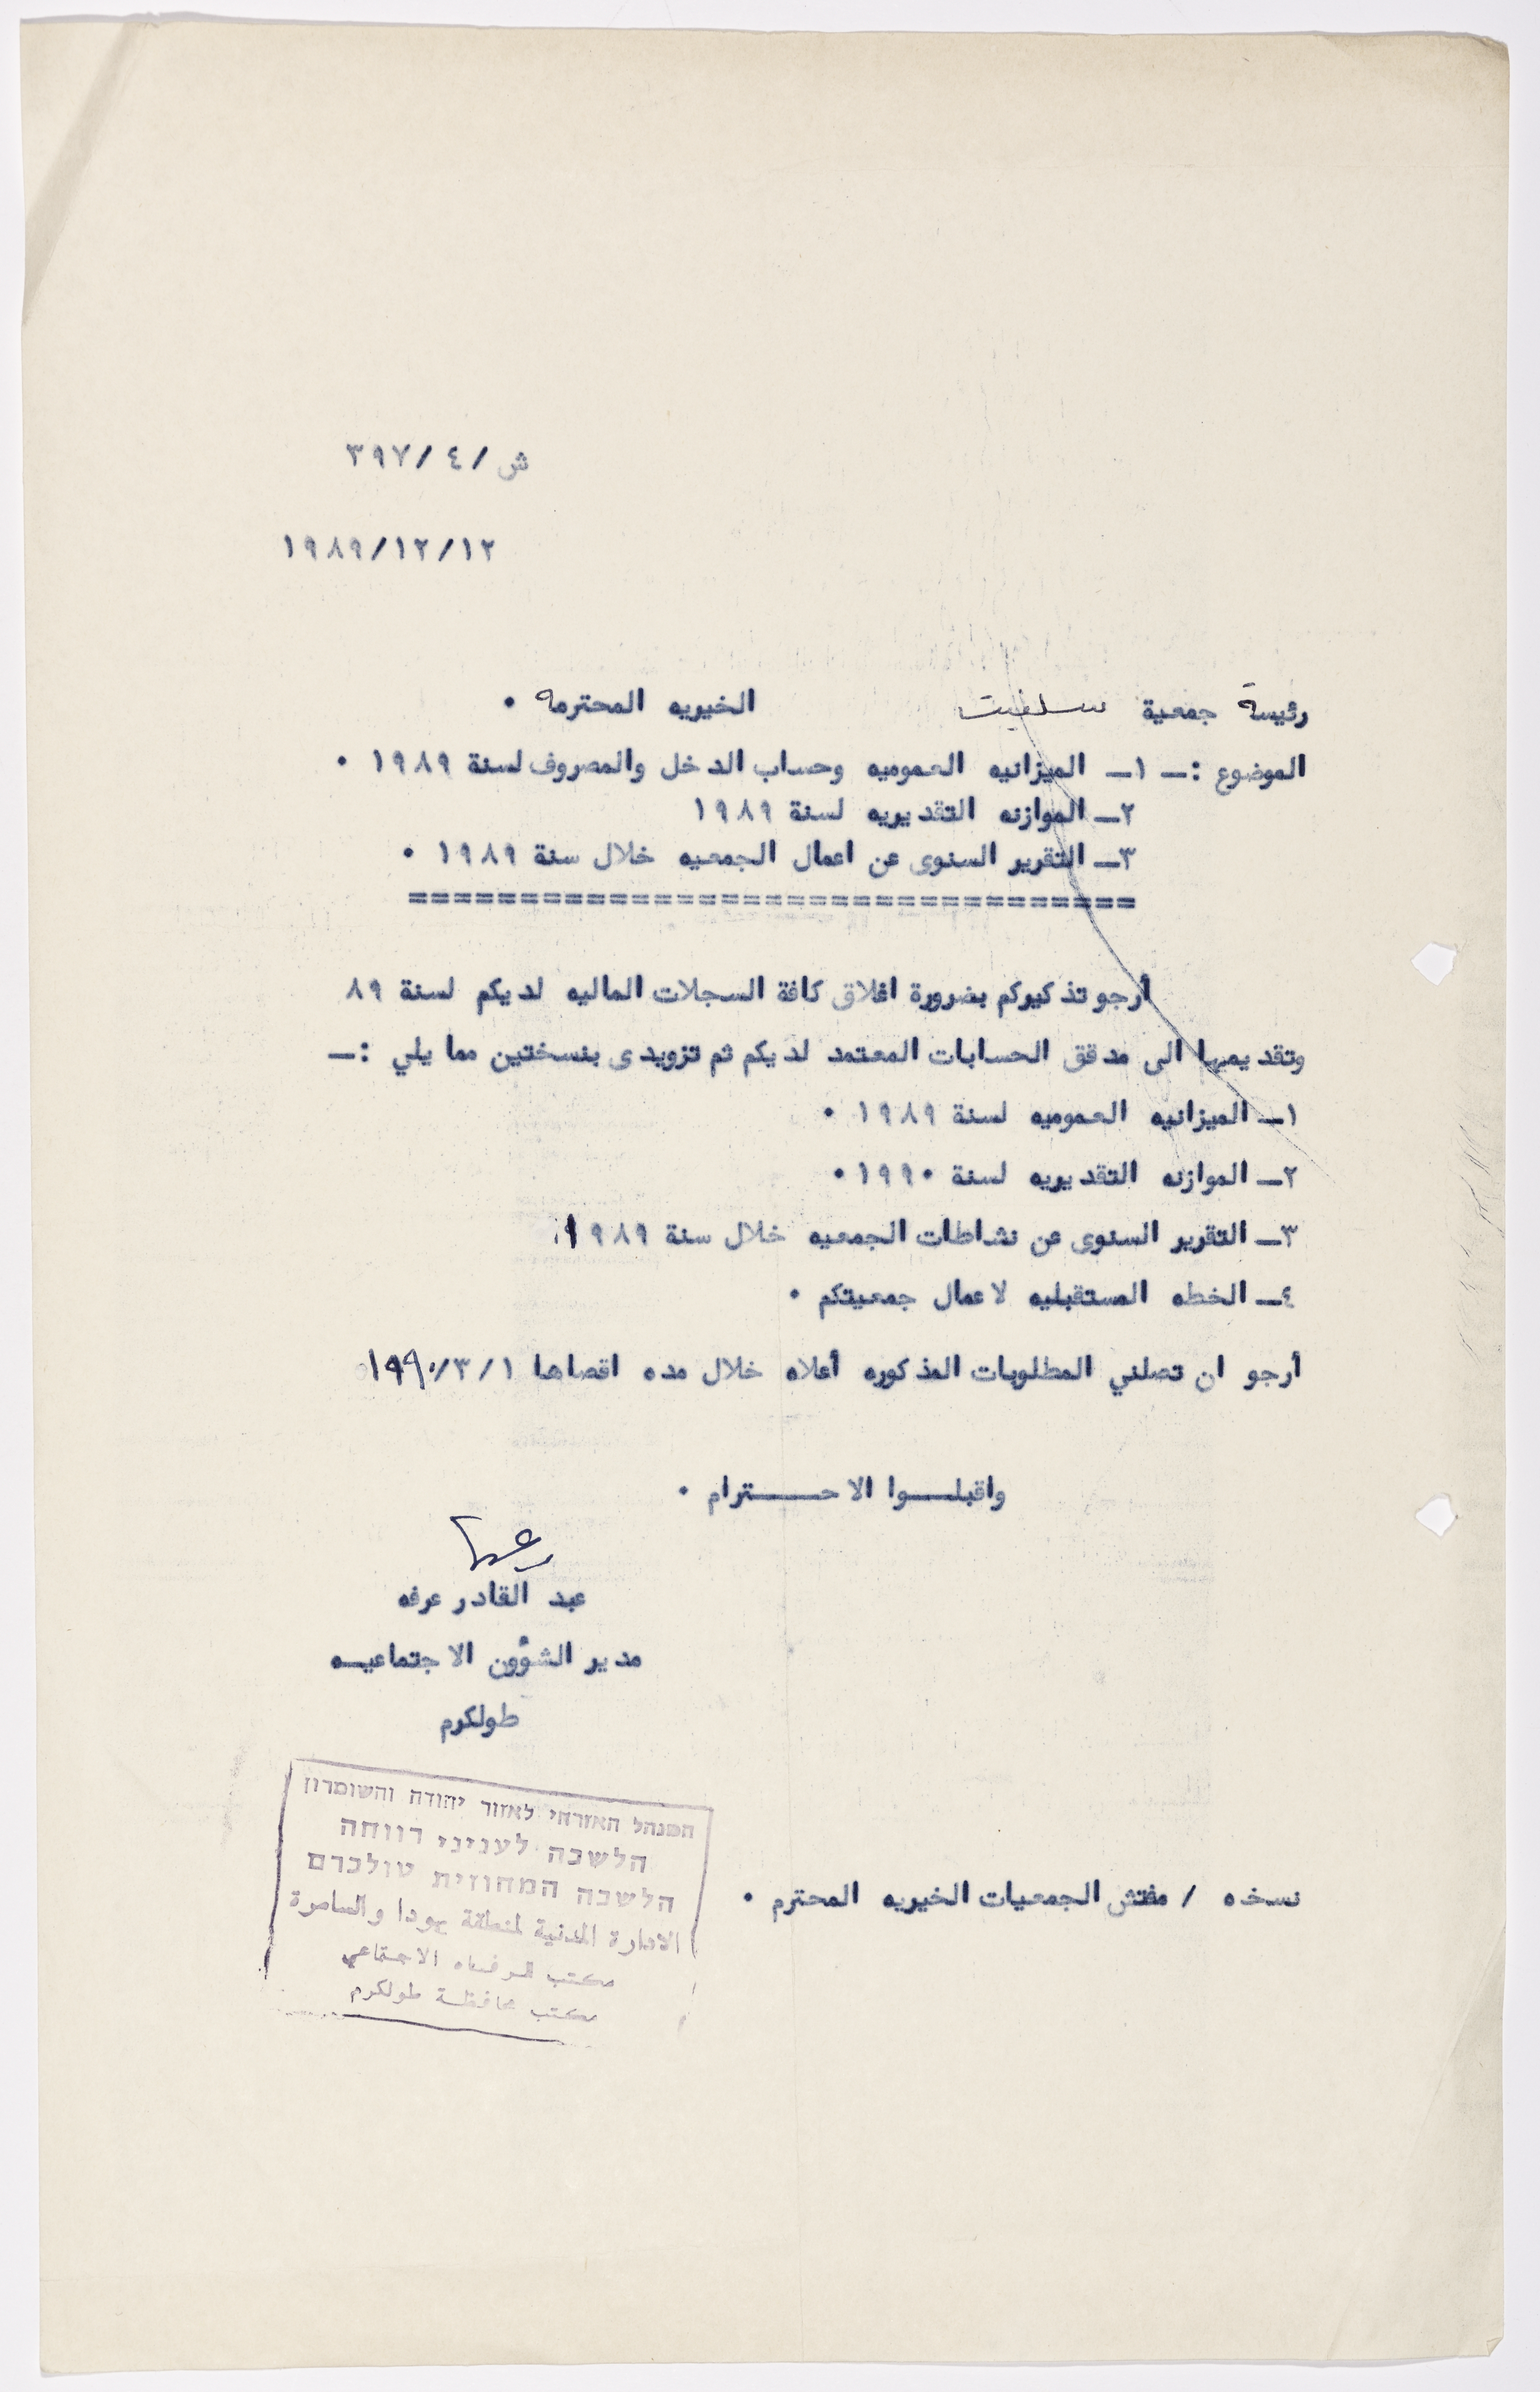 ش/٤/٣٩٧
١٩٨٩/١٢/١٢
رئيسة جمعية سلفيت الخيريه المحترمه ٠
الموضوع :ــ ١ــ الميزانيه العموميه وحساب الدخل والمصروف لسنة ١٩٨٩ ٠
٢ــ الموازنه التقديريه لسنة ١٩٨٩
٣ــ التقرير السنوى عن اعمال الجمعيه خلال سنة ١٩٨٩ ٠
=================================
أرجو تذكيركم بضرورة اغلاق كافة السجلات الماليه لديكم لسنة ٨٩
وتقديمها الى مدقق الحسابات المعتمد لديكم ثم تزويدى بنسختين مما يلي :ــ
١ــ الميزانيه العموميه لسنة ١٩٨٩ ٠
٢ــ الموازنه التقديريه لسنة ١٩٩٠ ٠
٣ــ التقرير السنوى عن نشاطات الجمعيه خلال سنة ١٩٨٩
٤ــ الخطه المستقبليه لاعمال جمعيتكم ٠
أرجو ان تصلني المطلوبات المذكوره أعلاه خلال مده اقصاها ١٩٩٠/٣/١
واقبلـــوا الاحــــترام ٠
عبد القادر عرفه
مدير الشؤون الاجتماعيــه
طولكرم
המנהל האזרחי לאזור יהודה והשומרון
הלשכה לעניני רווחה
הלשכה המחוזית טולכרם
الادارة المدنية لمنطقة يهودا والسامرة
مكتب الرفاه الاجتماعي
مكتب محافظة طولكرم
نسخه / مفتش الجمعيات الخيريه المحترم ٠